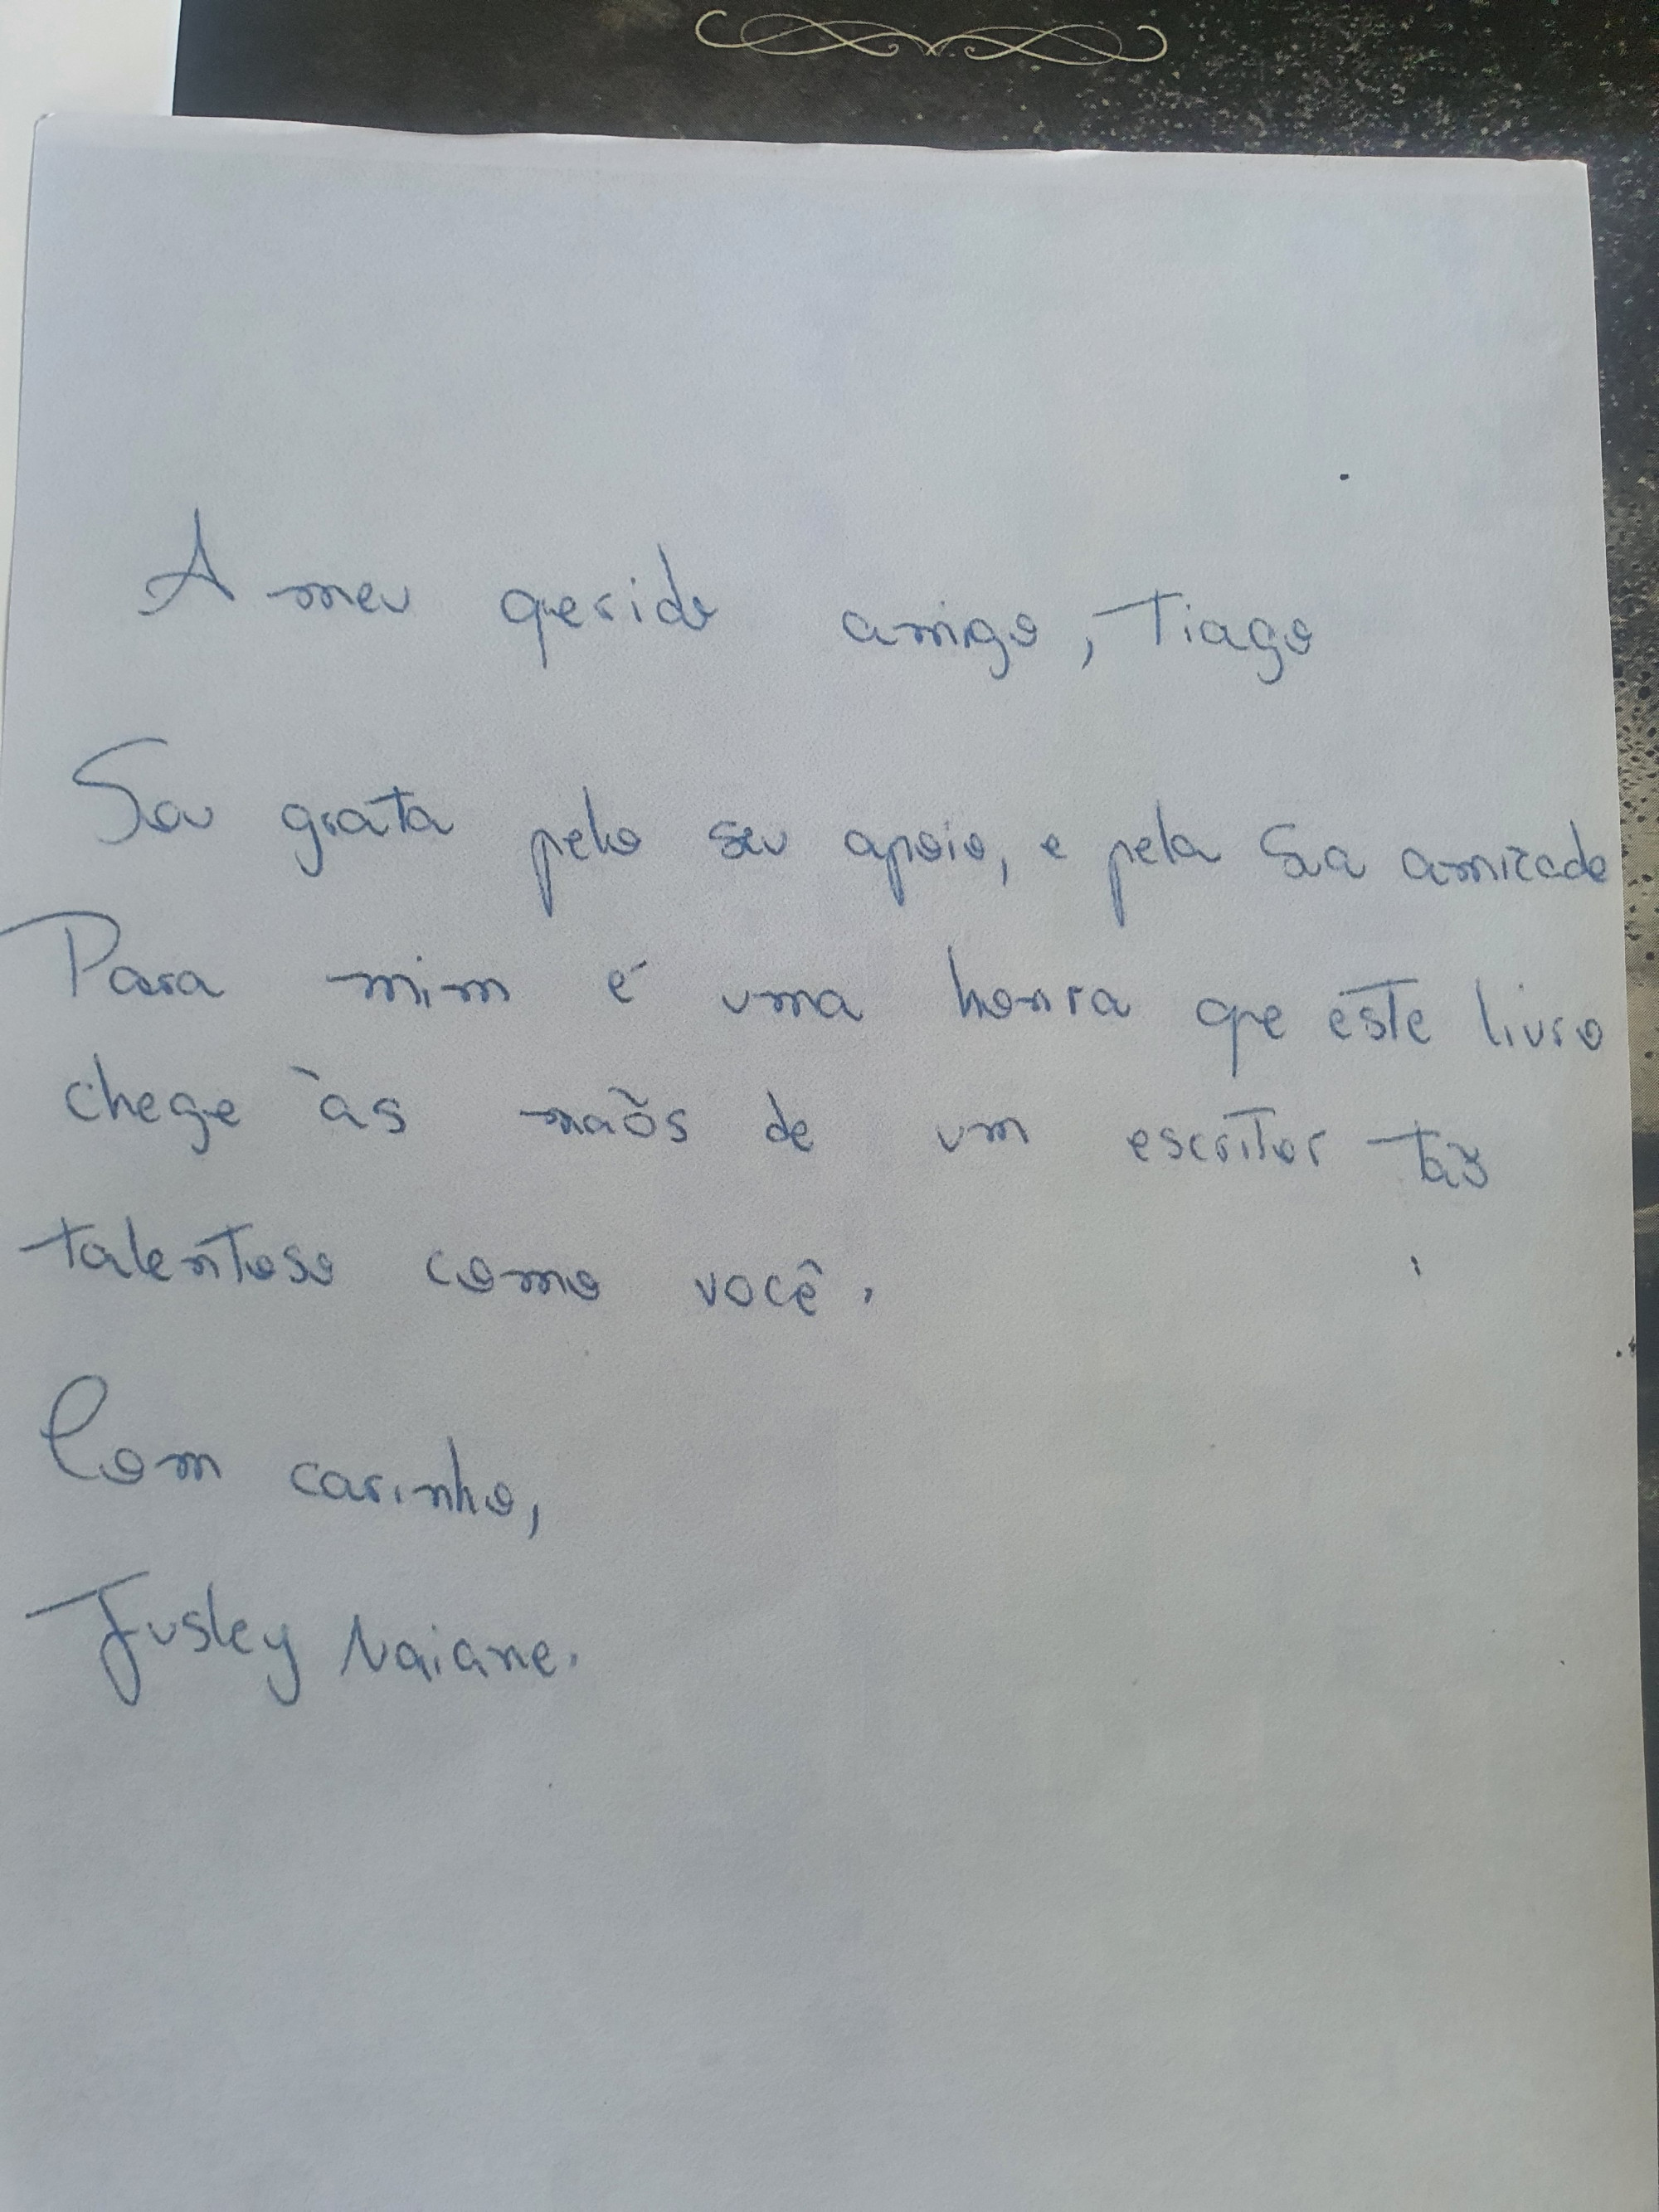 A meu querido amigo, Tiago
Sou grata pelo seu apoio, e pela sua amizade
Para mim é uma honra que este livro
chege às mãos de um escritor tão
talentoso como você.
Com carinho,
Jusley Naiane.